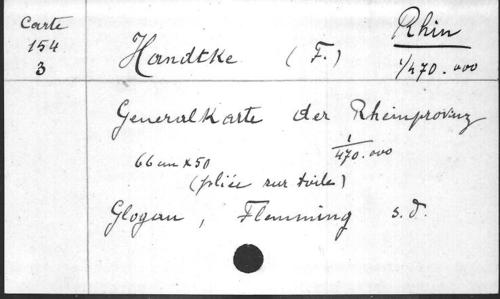 Carte
154
3
Rhin
Handtke (F.)
1/470.000
Generalkarte der Rheinprovinz
1/470.000
66 cm x 50
(pliée sur toile)
Glogau, Flemming s.d.